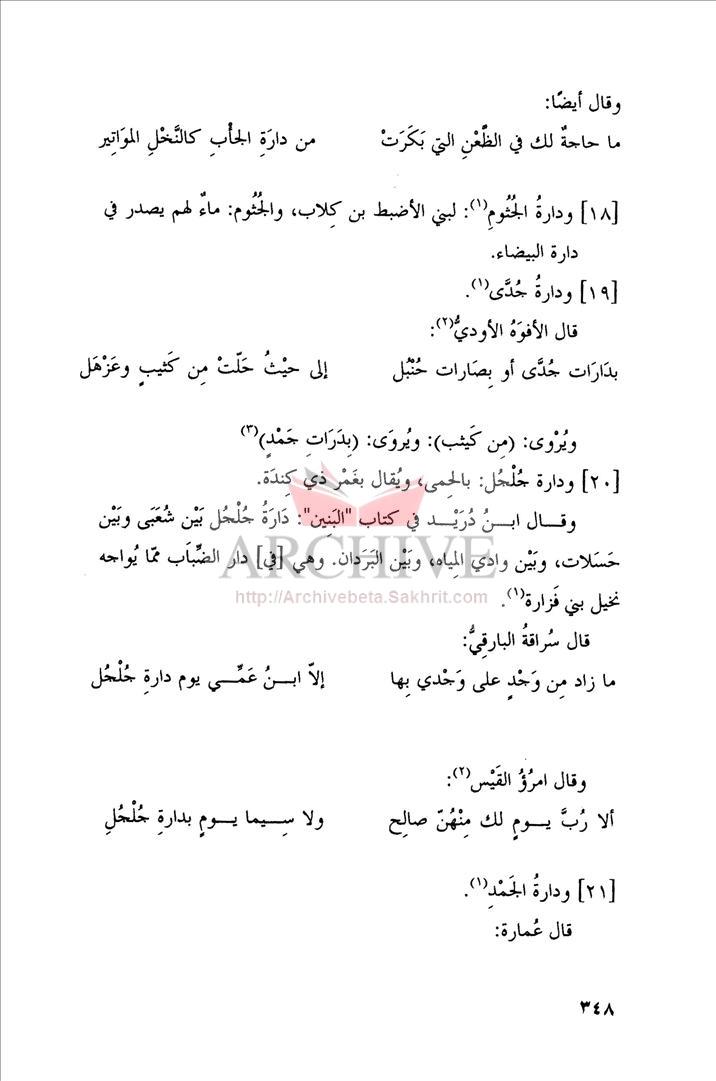 وقال أيضًا:
ما حاجةٌ لك في الظُّعْنِ التي بَكَرَتْ من دارَةِ الجَأْبِ كالنَّخْلِ المَوَاتِير
[١٨] ودارةُ الجُثُومِ(١): لبني الأضبط بن كِلاب، والجُثُوم: ماءٌ لهم يصدر في
دارة البيضاء.
[١٩] ودارةُ جُدَّى(١).
قال الأفوَهُ الأوديُّ(٢):
بدَارَات جُدَّى أو بِصَارات حُنْبُل إلى حيْثُ حَلّتْ مِن كَثيبٍ وعَزْهَل
ويُرْوى: (مِن كَيثب): ويُروَى: (بِدَرَاتِ جَمْدٍ)(٣)
[٢٠] ودارة جُلْجُل: بالحِمى، ويُقال بغَمْر ذي كِندَة.
وقال ابنُ دُرَيْد في كتاب "البَنِين": دَارَةُ جُلْجُل بَيْن شُعَبَى وبَيْن
حَسَلات، وبَيْن وادي المِياه، وبَيْن البَرَدان. وهي [في] دار الضِّبَاب ممّا يُواجه
ARCHIVE
http://Archivebeta.Sakhrit.com
نخيل بني فَزارة(١).
قال سُراقةُ البارقِيُّ:
ما زاد مِن وَجْدٍ على وَجْدي بِها إلاّ ابنُ عَمِّي يوم دارةِ جُلْجُل
وقال امرُؤُ القَيْس(٢):
ألا رُبَّ يومٍ لك مِنْهُنّ صالح ولا سِيما يومٍ بدارةِ جُلْجُلِ
[٢١] ودارةُ الجَمْدِ(١).
قال عُمارة:
٣٤٨